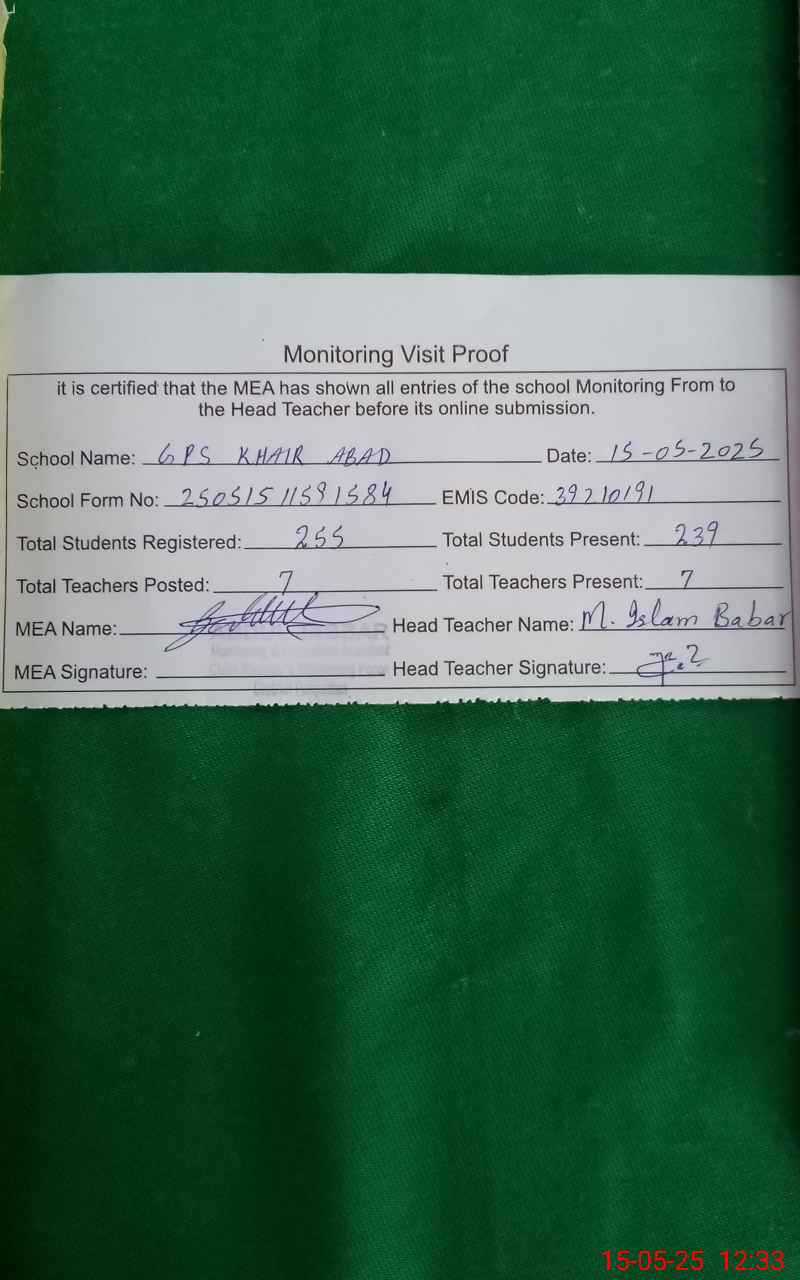 Monitoring Visit Proof
it is certified that the MEA has shown all entries of the school Monitoring From to
the Head Teacher before its online submission.
School Name: GPS KHAIR ABAD Date: 15-05-2025
School Form No: 25051511591584 EMIS Code: 39210191
Total Students Registered: 255 Total Students Present: 239
Total Teachers Posted: 7 Total Teachers Present: 7
MEA Name: Head Teacher Name: M. Islam Babar
MEA Signature: Head Teacher Signature:
15-05-25 12:33